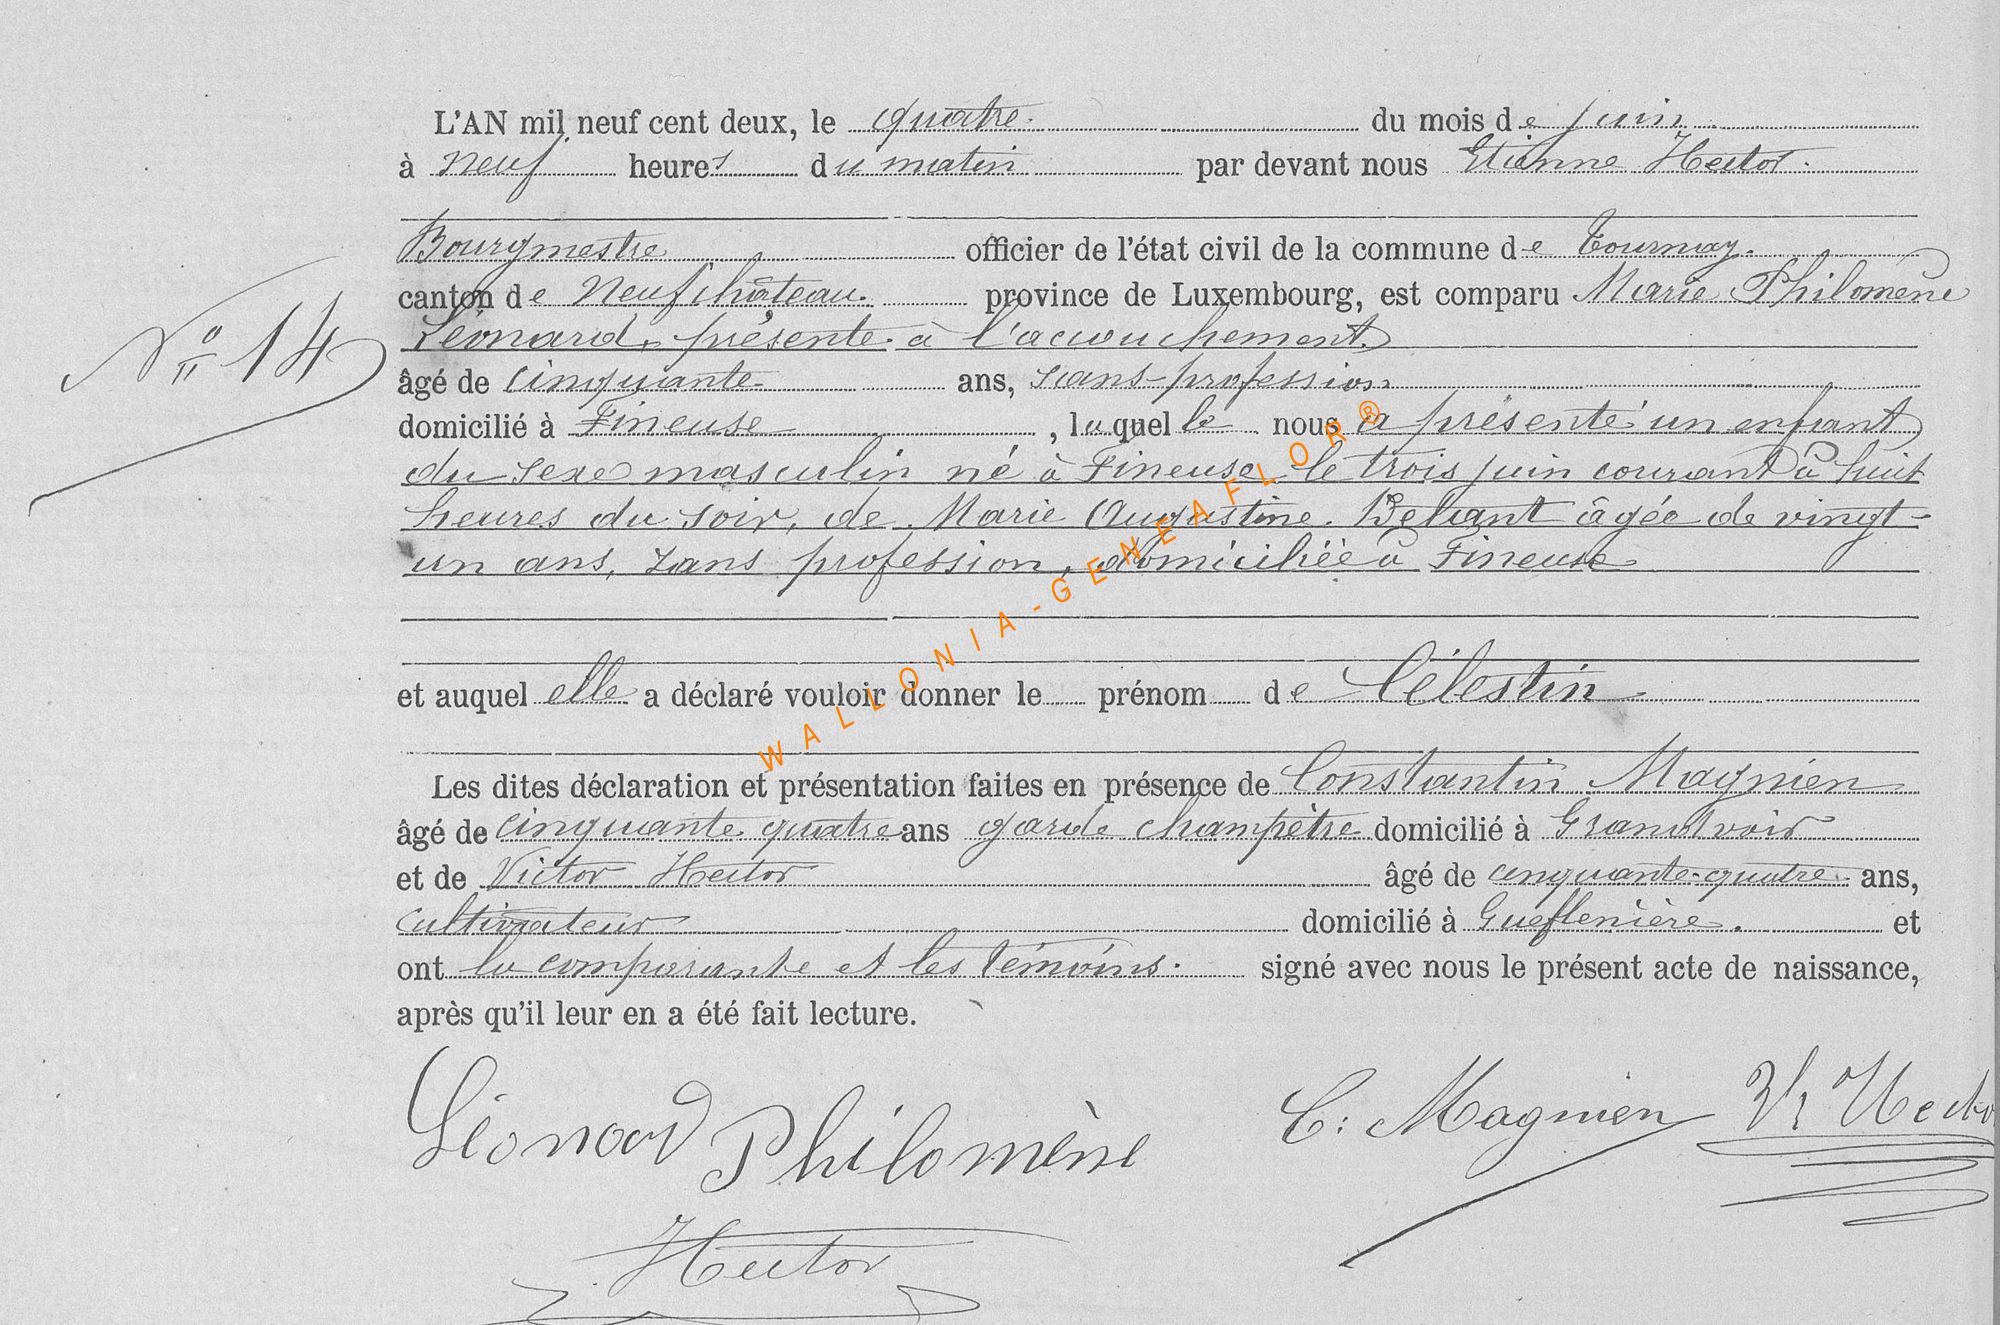 L'AN mil neuf cent deux, le quatre du mois de juin
à neuf heures du matin par devant nous Etienne Hector
Bourgmestre officier de l'état civil de la commune de Tournay
canton de Neufchâteau province de Luxembourg, est comparu Marie Philomène
N° 14
Léonard, présente à l'accouchement
âgé de cinquante ans, sans profession
domicilié à Fineuse, laquelle nous a présenté un enfant
du sexe masculin né à Fineuse le trois juin courant à huit
heures du soir, de Marie Augustine âgée de vingt-
un ans, sans profession, domiciliée à Fineuse
et auquel elle a déclaré vouloir donner le prénom de Célestin
WALLONIA-GENEAFLOR®
Les dites déclaration et présentation faites en présence de Constantin Magnien
âgé de cinquante quatre ans garde champêtre domicilié à Grandvoir
et de Victor Hector âgé de cinquante-quatre ans,
cultivateur domicilié à et
ont la comparante et les témoins signé avec nous le présent acte de naissance,
après qu'il leur en a été fait lecture.
Léonard Philomène C: Magnien Vr Hector
Hector